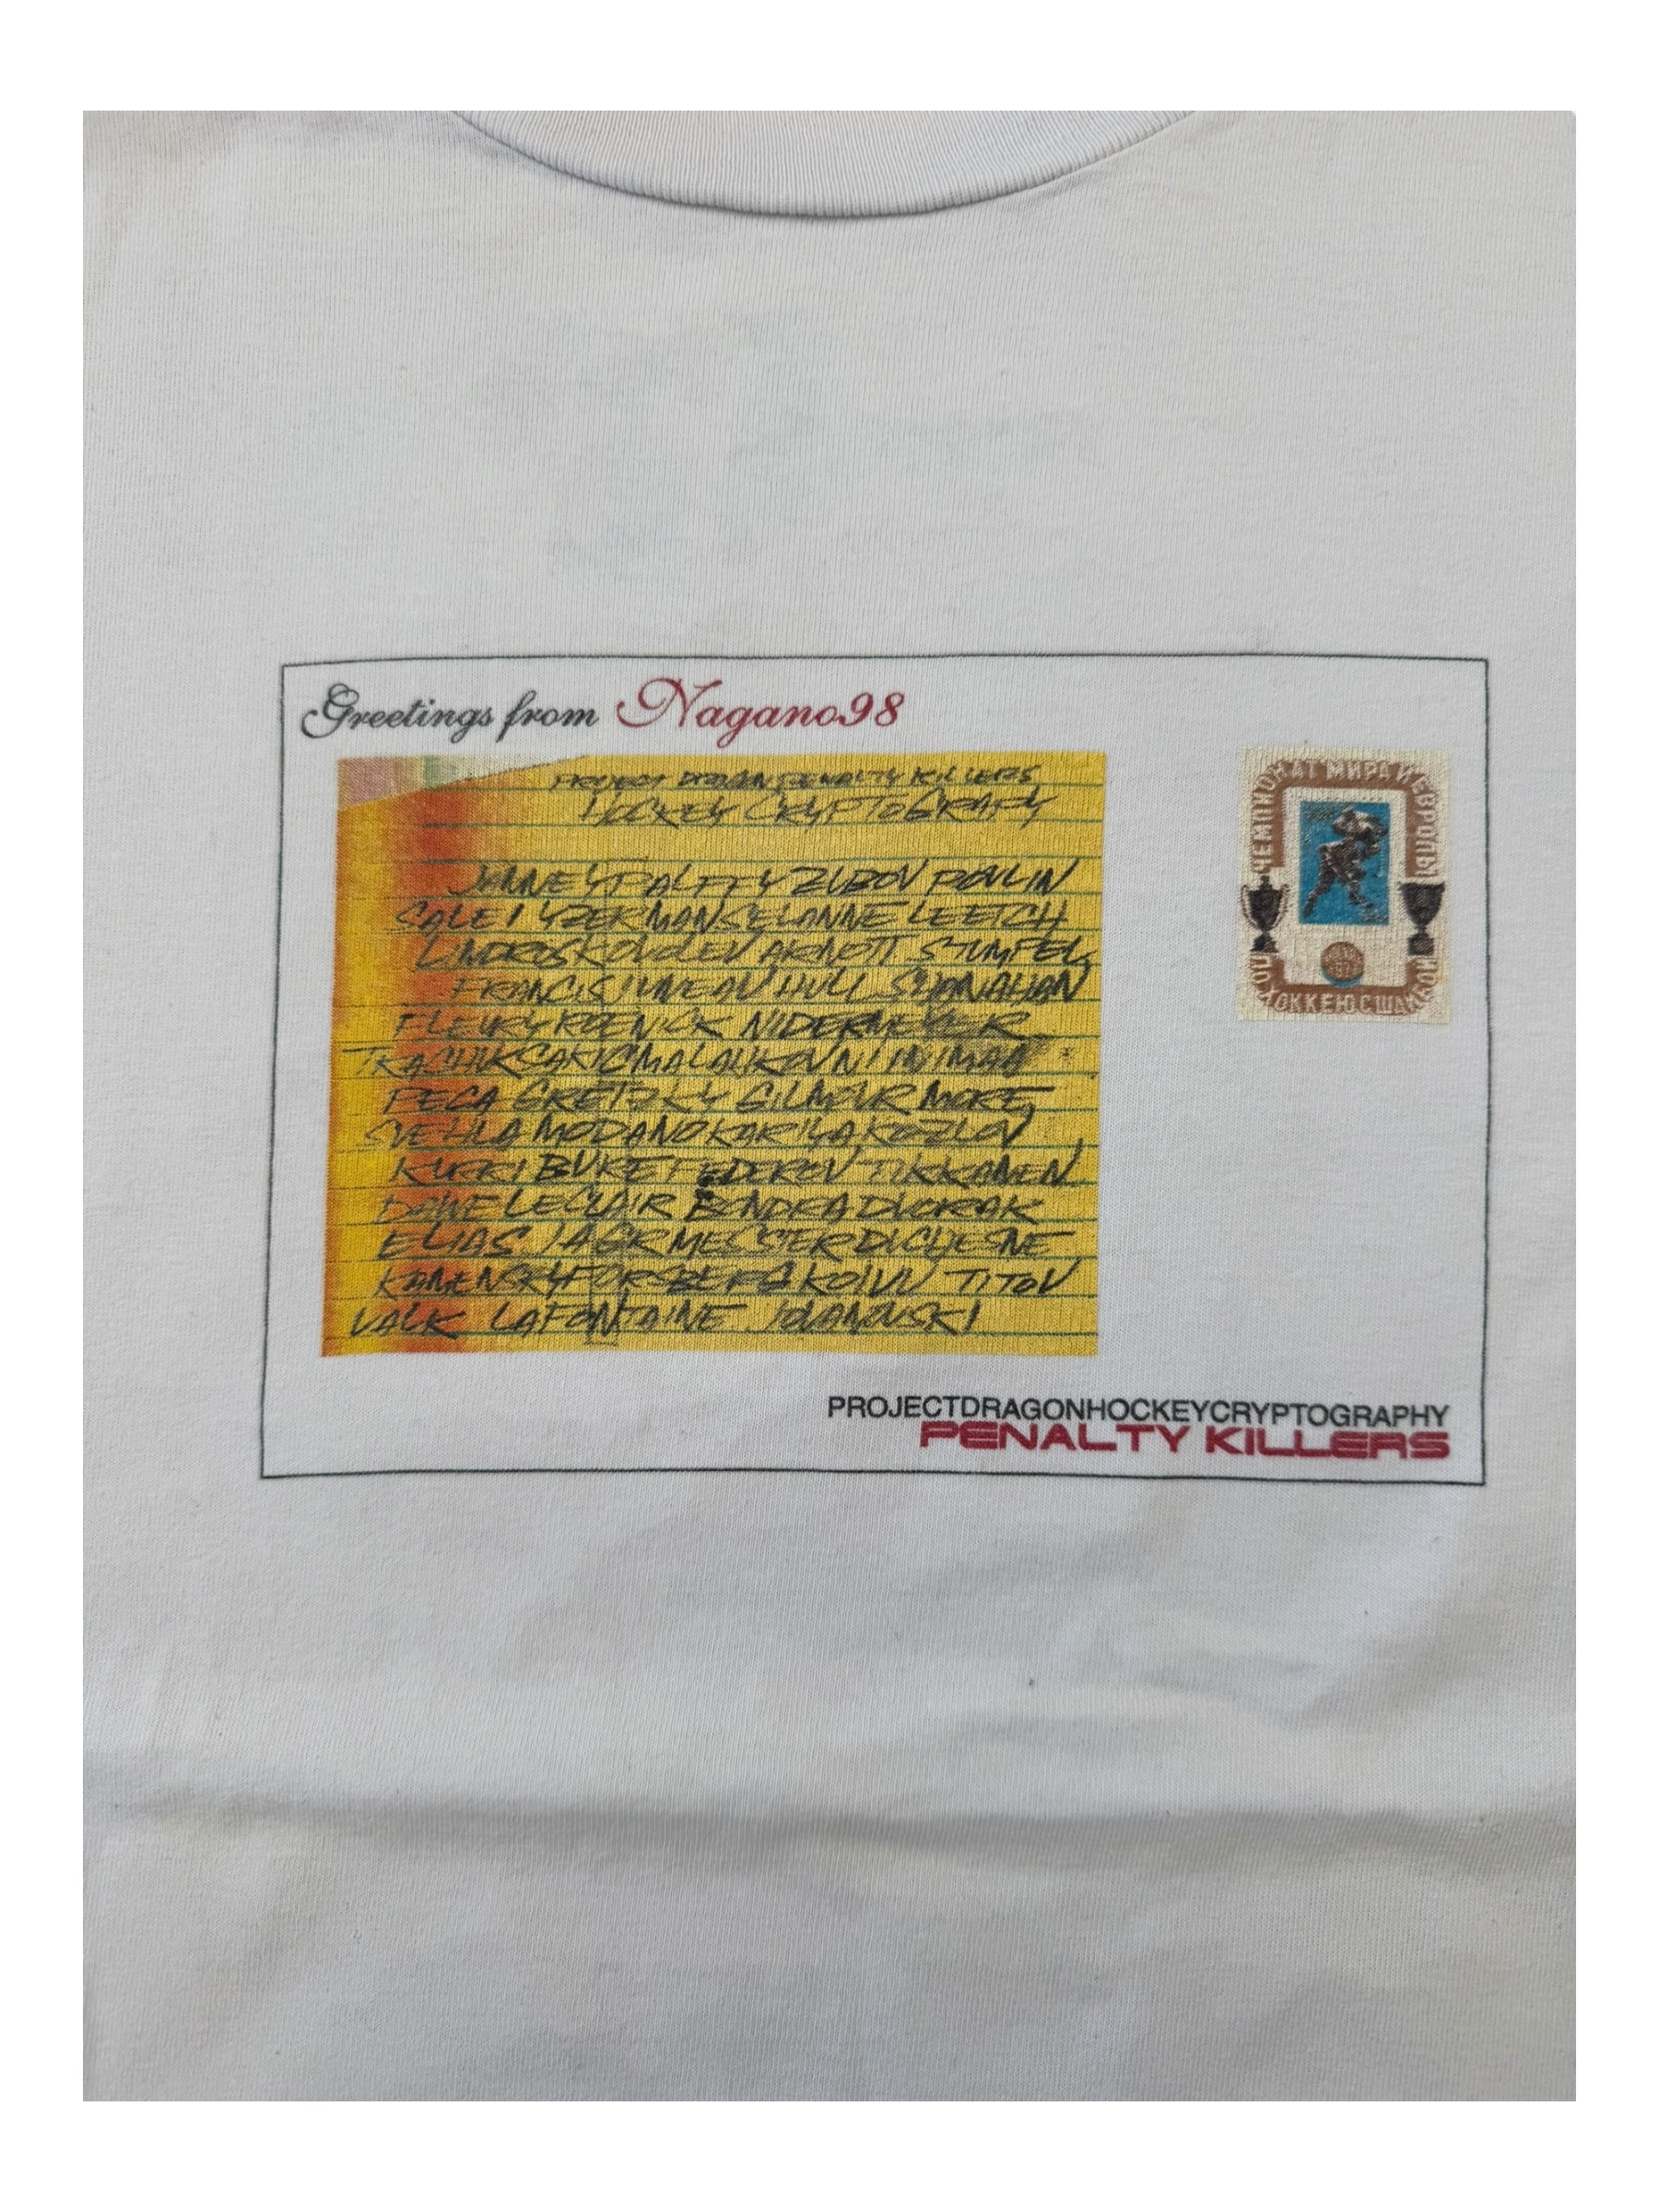 Greetings from Nagano98
PROJECT DRAGON PENALTY KILLERS
HOCKEY CRYPTOGRAFY
JANNEY PALFFY ZUBOV POULIN
SALEI YZERMAN SELANNE LEETCH
LINDROS KOVALEV ARNOTT STUMPEL
FRANCIS JUNEAU HULL SHANAHAN
FLEURY ROENICK NIDERMEYER
TKACHUK SAKIC MALAHKOV NINIMAA
PECA GRETZKY GILMOUR MORE
SVEHLA MODANO KARIYA KOZLOV
KURRI BURE FEDEROV TIKKANEN
DAWE LECLAIR BONDRA DVORAK
ELIAS JAGR MESSTER DUCHESNE
KAMENSKY FORSBERG KOIVU TITOV
VALK LAFONTAINE JOVANOVSKI
ЧЕМПИОНАТ МИРА И ЕВРОПЫ
ПО ХОККЕЮ США
PROJECTDRAGONHOCKEYCRYPTOGRAPHY
PENALTY KILLERS